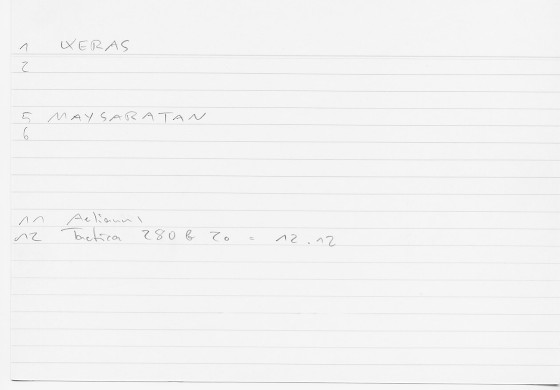 1 WERAS
2
5 MAYSARATAN
6
11 Aeliani
12 Tactica 280 B 20 = 12.12